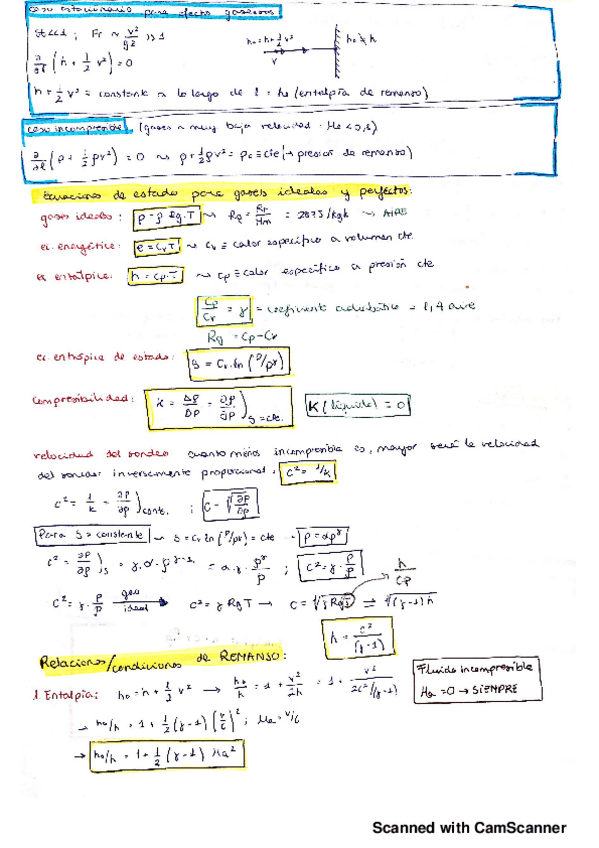 caso estacionario para efectos gaseosos:
St<<1 ; Fr ~ v²/gl >>1
h₀ = h + 1/2 v²
v
∂/∂l (h + 1/2 v²) = 0
h + 1/2 v² = constante a lo largo de l = h₀ (entalpía de remanso)
caso incompresible, (gases a muy baja velocidad - Ma < 0,3)
∂/∂l (p + 1/2 ρv²) = 0 ~ p + 1/2 ρv² = p₀ ≡ cte (→ presión de remanso)
Ecuaciones de estado para gases ideales y perfectos:
gases ideales: p = ρ Rg·T ~ Rg = = 287 J/kgK ~ AIRE
ec. energética: e = Cv T ~ Cv ≡ calor específico a volumen cte
ec. entálpica: h = Cp·T ~ Cp ≡ calor específico a presión cte
Cp/Cv = γ = coeficiente adiabático = 1,4 aire
Rg = Cp - Cv
ec. entrópica de estado: s = Cv·ln (p/ρ^γ)
compresibilidad: K = Δρ/Δp = ∂ρ/∂p )s = cte.
K (líquido) = 0
velocidad del sonido cuanto menos incompresible es, mayor será la velocidad
del sonido: inversamente proporcional. c² = 1/K
c² = 1/K = ∂p/∂ρ ) ; c = √∂p/∂ρ
Para s = constante ~ s = Cv ln (p/ρ^γ) = cte → p = αρ^γ
c² = ∂p/∂ρ )s = γ·α·ρ^γ-1 = α·γ·ρ^γ/ρ ; c² = γ·p/ρ
h/Cp
c² = γ·p/ρ gas ideal → c² = γ Rg T → c = √γ Rg T = √(γ-1) h
h = c²/(γ-1)
Relaciones/condiciones de REMANSO:
1. Entalpía: h₀ = h + 1/2 v² → h₀/h = 1 + v²/2h = 1 + v²/2c²/(γ-1)
Fluido incompresible
Ma = 0 → SIEMPRE
→ h₀/h = 1 + 1/2 (γ-1) (v/c)² ; Ma = v/c
→ h₀/h = 1 + 1/2 (γ-1) Ma²
Scanned with CamScanner